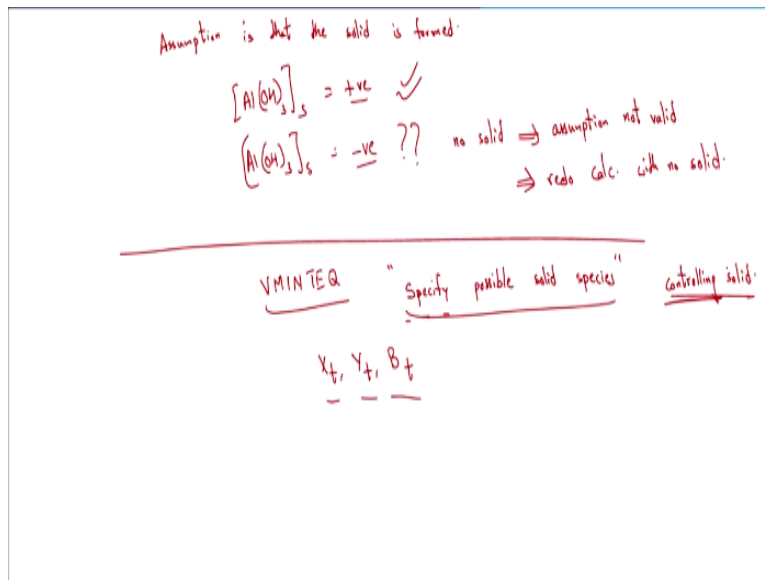 Assumption is that the solid is formed.
[Al(OH)₃]ₛ = +ve ✓✓
[Al(OH)₃]ₛ = -ve ?? no solid ⇒ assumption not valid
⇒ redo calc. with no solid.
VMINTEQ "Specify possible solid species" controlling solid.
Xₜ, Yₜ, Bₜ